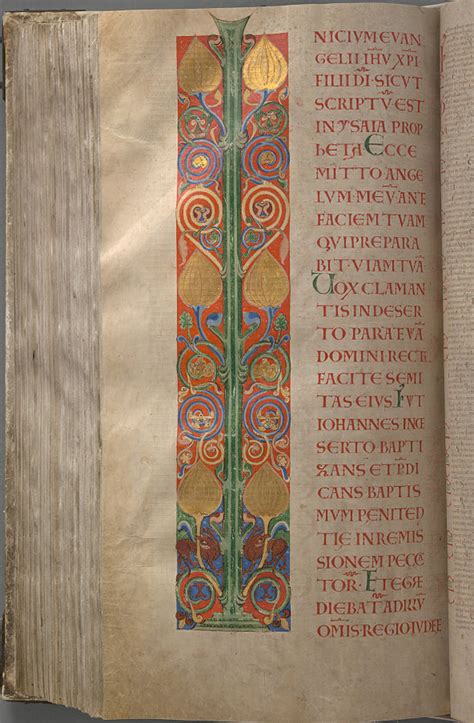 NICIVM EVAN
GELII IHV XPI
FILII DI SICVT
SCRIPTV EST
IN YSAIA PROP
hETA ECCE
MITTO ANGE
LVM MEV ANTE
FACIEM TVAM
QVI PREPARA
BIT VIAM TVĀ
VOX CLAMAN
TIS IN DESER
TO PARATE VĀ
DOMINI RECTE
FACITE SEMI
TAS EIVS FVT
IOHANNES IN
SERTO BAPTI
ZANS ET PDI
CANS BAPTIS
MVM PENITED
TIE IN REMIS
SIONEM PECCA
TOR ET EGRE
DIEBAT AD ILLV
OMIS REGIO JVDEE